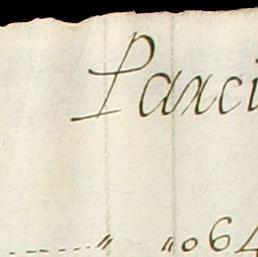 Parci
........ " "064